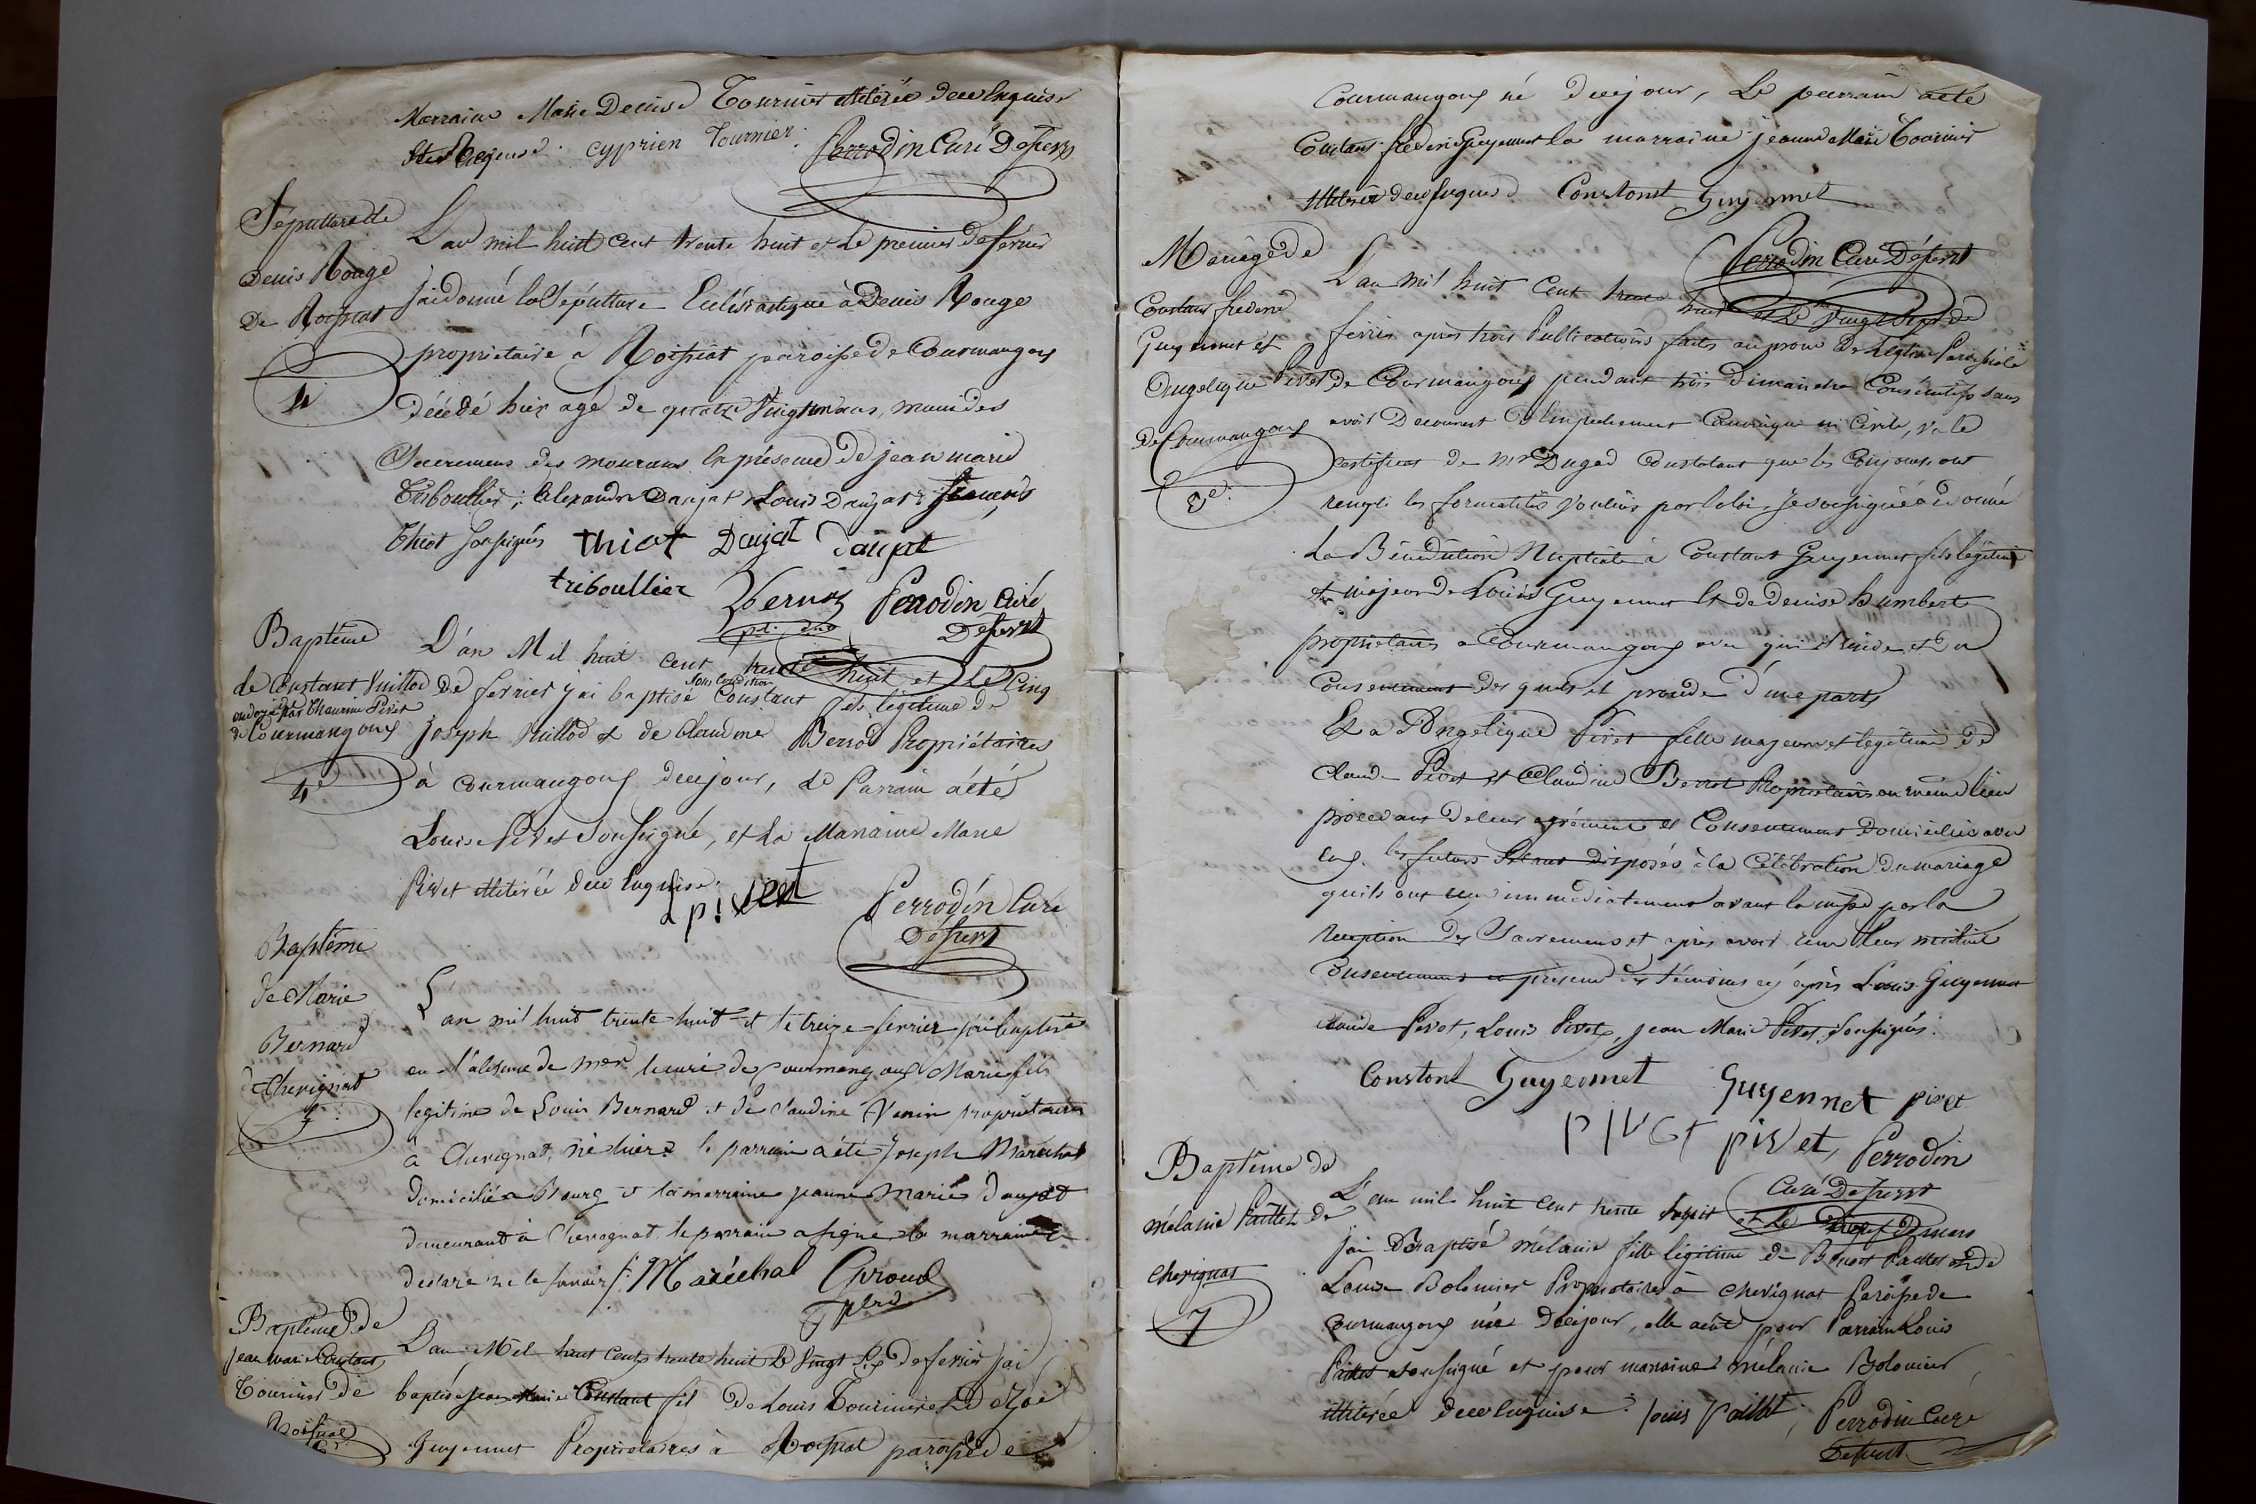 Marraine Marie Denise Tournier illitérée dece enquise
et Requise. cyprien Tournier. Perrodin Curé Desservt
Sépulture de
Denis Rouge
De Roissiat
4
L'an mil huit cent trente huit et le premier de fevrier
j'ai donné la Sépulture Eclésiastique à Denis Rouge
propriétaire à Roissiat paroisse de Courmangoux
décédé hier agé de quatre Vingt ans, muni des
Sacremens des mourans en présence de jean marie
Triboullier, Alexandre Daujat, Louis Daujat
Thiot soussignés Thiot Daujat Daujat
triboullier Perrodin curé
Desservt
Baptême
de Constant Vuillod
ondoyé par Claudine Pivet
de Courmangoux
4e
L'an Mil huit cent trente huit et Le Cinq
De fevrier j'ai baptisé sous condition Constant fils légitime de
Joseph Vuillod et de Claudine Berrod Propriétaires
à courmangoux decejour, Le Parrain aété
Louis Pivet Soussigné, et La Maraine Marie
Pivet illitérée dece Enquise.
L pivet Perrodin Curé
Desservt
Baptême
de Marie
Bernard
de Chevignat
L'an mil huit trente-huit et le treize fevrier j'ai baptisé
en l'absence de mr le curé de Courmangoux Marie fille
legitime de Louis Bernard et de Claudine Venin propriétaires
à Chevignat, née hier. le parrain a été Joseph Maréchal
domicilié a Bourg et la marraine jeanne Marie daujat
demeurant à Chevignat. le parrain a signé la marraine
declare ne le savoir. J. Maréchal Giroud
Baptême de
jean marie Constant
Tournier de
Roissiat
L'an Mil huit cent trente huit Le Vingt Six de fevrier j'ai
baptisé jean Marie Constant fils De Louis Tournier et De Zoé
Guyennet Propriétaires à Roissiat paroisse de
Courmangoux né decejour, Le parrain aété
Constant frederic Guyennet la marraine jeanne Marie Tournier
illitérée dece Enquise Constant Guyennet
Perrodin Curé Desservt
Mariage de
Constant frederic
Guyennet et
Angelique Pivet
de Courmangoux
5e
L'an mil huit Cent trente huit et Le Vingt Sept de
fevrier après trois Publications faites au prone De L'eglise Paroissiale
de Courmangoux pendant trois Dimanches Consécutifs sans
avoir Decouvert d'Empechement Canonique ni Civil, vu le
certificat de mr Duged Constatant que les Conjoints ont
rempli les formalités Voulues par la loi, je soussigné ai donné
La Bénédiction Nuptiale à Constant Guyennet fils légitime
et majeur de Louis Guyennet Et de denise humbert
propriétaires a Courmangoux avec qui il reside et du
Consentement des quels il procède D'une part
Et a Angelique Pivet fille majeure et légitime de
Claude Pivet et Claudine Berrod Propriétaires au même lieu
procedant De leur agrément et Consentement Domiciliée avec
eux. les futurs disposés à la Célébration Du mariage
quils ont immédiatement avant la messe par la
reception des Sacremens et après avoir reçu leur mutuel
consentement en présence des témoins cy après Louis Guyennet
Claude Pivet, Louis Pivet, jean Marie Pivet, Soussignés.
Constant Guyennet Guyennet pivet
pivet pivet, Perrodin
Curé Desservt
Baptême de
mélanie Paillet de
chevignat
7
L'an mil huit cent trente huit et Le Mars
j'ai Baptisé mélanie fille légitime de Benoit Paillet et de
Louise Bolomier Propriétaires à chevignat Paroisse de
Courmangoux née Decejour, elle aeut pour Parrain Louis
Paillet soussigné et pour maraine mélanie Bolomier
illitérée dece Enquise. louis paillet, Perrodin Curé
Desservt